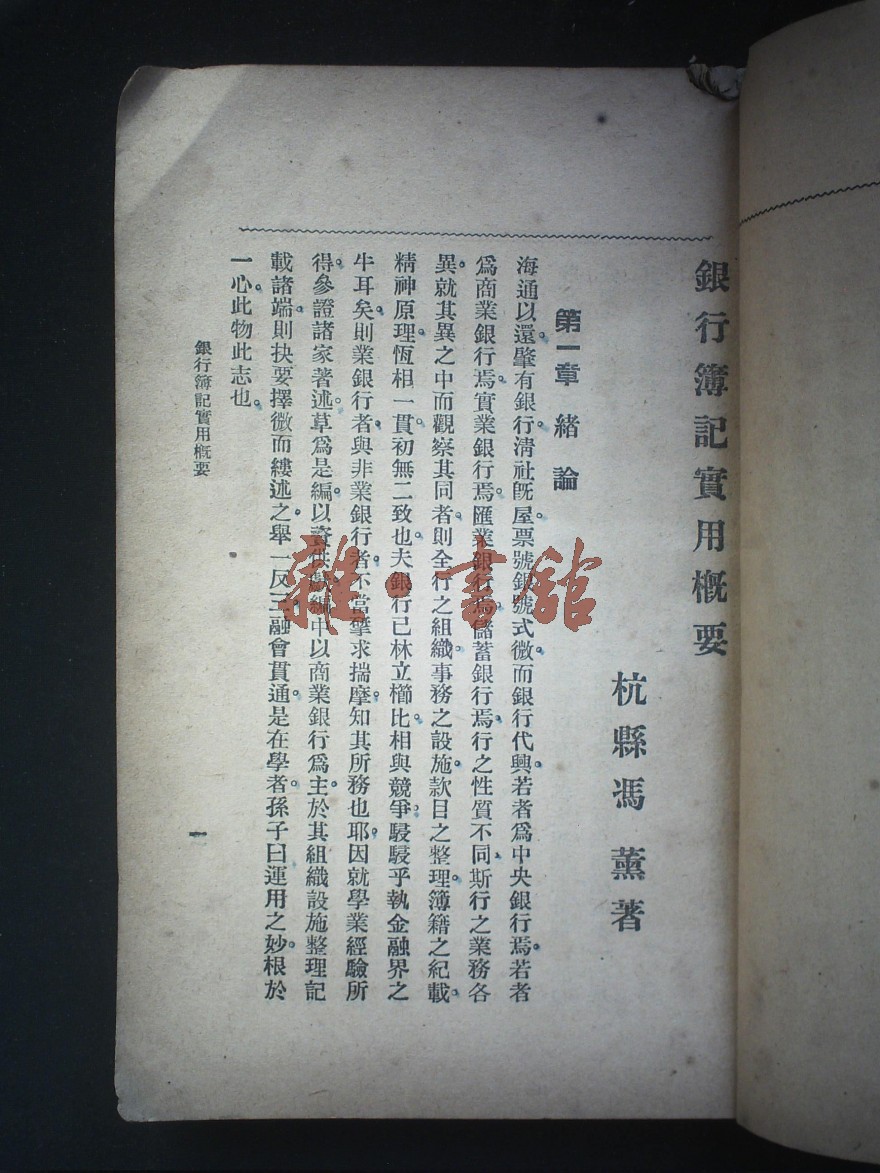 銀行簿記實用概要
杭縣馮薰著
第一章 緒論
海通以還。肇有銀行。淸社旣屋。票號銀號式微。而銀行代興。若者爲中央銀行焉。若者
爲商業銀行焉。實業銀行焉。匯業銀行焉。儲蓄銀行焉。行之性質不同。斯行之業務各
異。就其異之中而觀察其同者。則全行之組織。事務之設施。款目之整理。簿籍之紀載。
精神原理。恆相一貫。初無二致也。夫銀行已林立櫛比。相與競爭。駸駸乎執金融界之
牛耳矣。則業銀行者。與非業銀行者。不當擘求揣摩。知其所務也耶。因就學業經驗所
得。參證諸家著述。草爲是編。以資供獻。編中以商業銀行爲主。於其組織設施整理記
載諸端。則抉要擇微而縷述之。舉一反三。融會貫通。是在學者。孫子曰。運用之妙。根於
一心。此物此志也。
銀行簿記實用概要
一
雜·書館